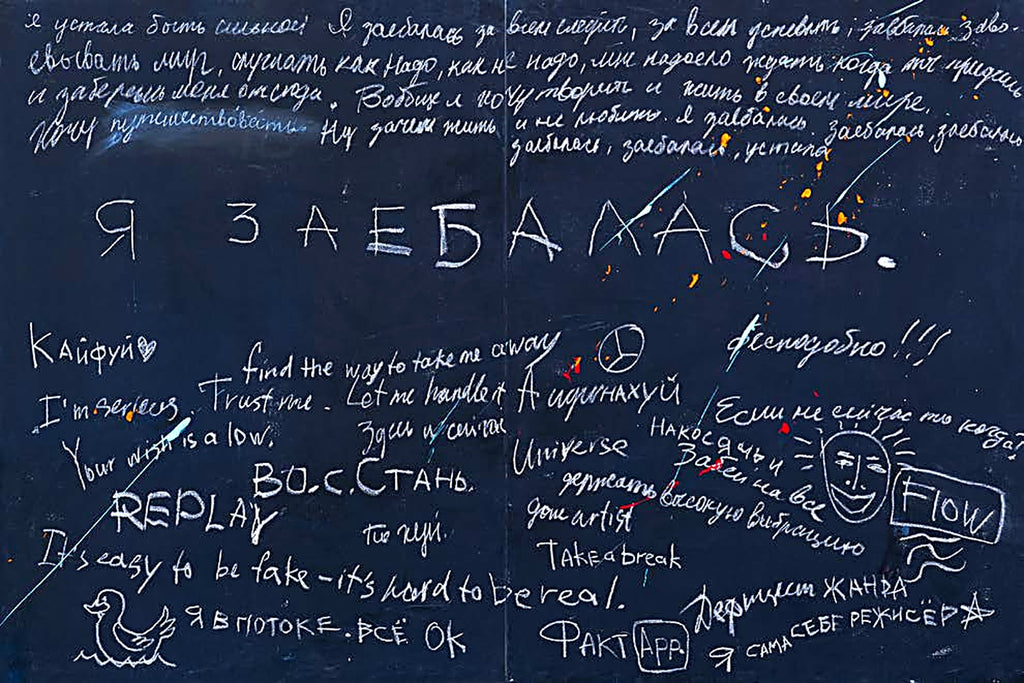 Я устала быть сильной! Я заебалась за всем следить, за всем успевать, заебалась заво-
ёвывать мир, скучать как надо, как не надо, мне надоело ждать когда ты придёшь
и заберёшь меня отсюда. Вообще я хочу творить и жить в своём мире.
Хочу путешествовать. Ну зачем жить и не любить. Я заебалась, заебалась, заебалась
заебалась, заебалась, устала
Я ЗАЕБАЛАСЬ.
Кайфуй
бесподобно!!!
find the way to take me away
I'm serious. Trust me. Let me handle it
А идионахуй
Если не сейчас то когда?
Your wish is a low.
Здесь и сейчас
Universe
На косячь и
Забей на все
ВО.С.Стань.
держать высокую вибрацию
Flow.
REPLAY
done artist
По хуй.
Take a break
It's easy to be fake - it's hard to be real.
Дефицит ЖАНРА
Я В ПОТОКЕ. ВСЁ ОК
ФАКТ App.
Я САМА СЕБЕ РЕЖИСЁР